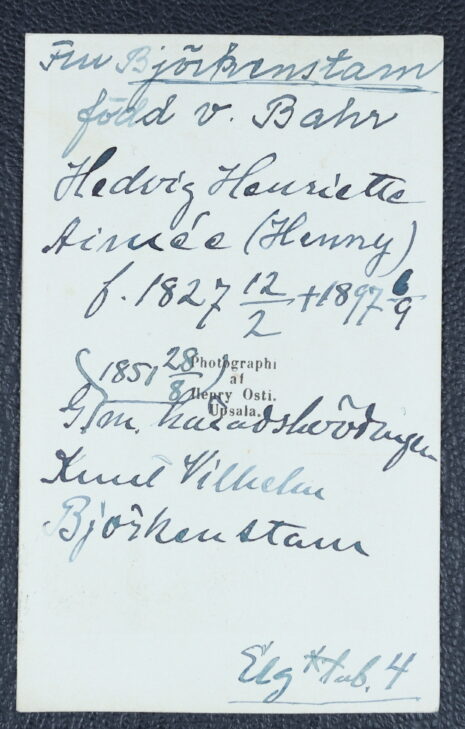 Fru Björkenstam
född v. Bahr
Hedvig Henriette
Aimée (Henny)
f. 1827 12/2 +1897 6/9
(1851 28/8)
Photographi
af
Henry Osti.
Upsala.
G. m. häradshövdingen
Knut Vilhelm
Björkenstam
Elg* tab. 4